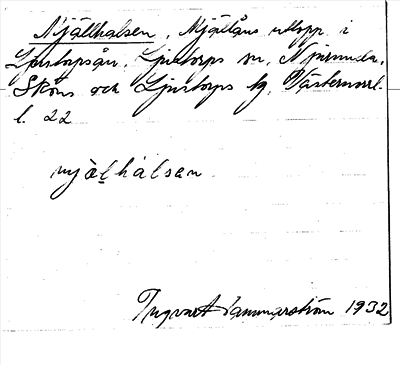 Mjällhalsen, Mjällåns utlopp i
Ljustorpsån, Ljustorps sn, Njurunda,
Sköns och Ljustorps tg, Västernorrl.
l. 22
mjäḷhálsen
Ingvart Hammarström 1932